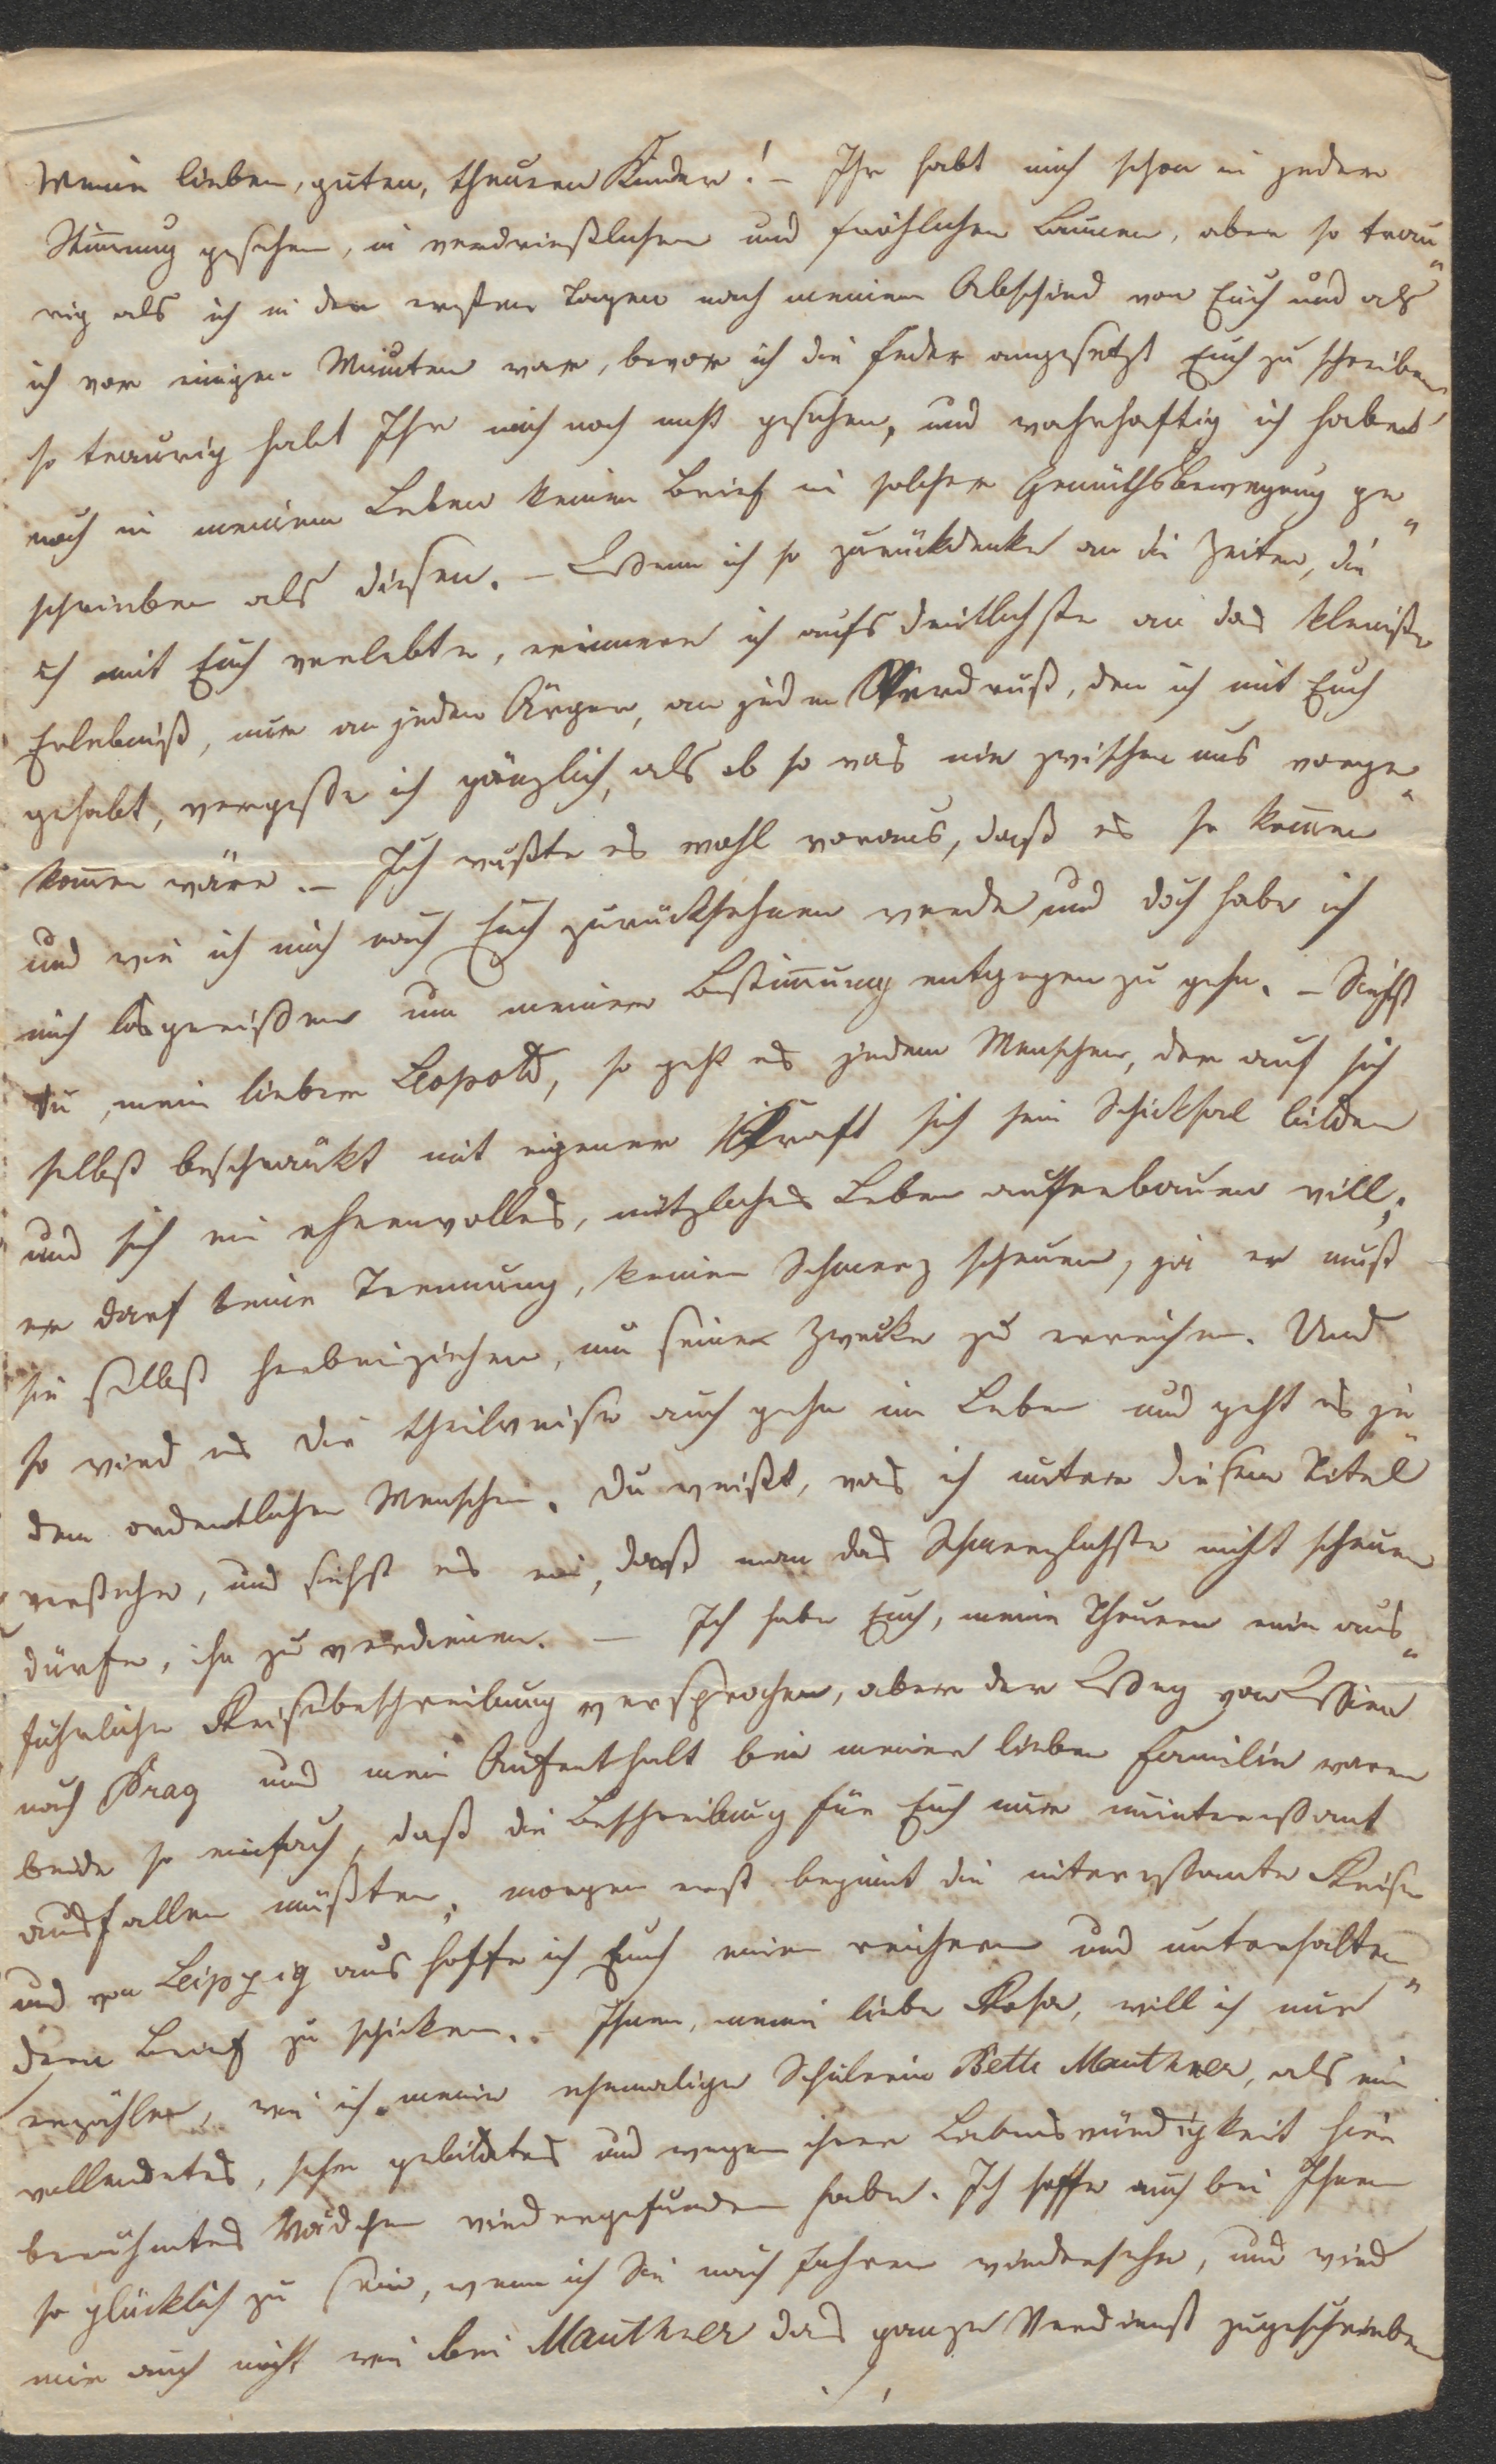 Meine lieben, guten, theuren Kinder! – Ihr habt mich schon in jeder
Stim̄ung gesehen, in verdrießlichen und fröhlichen Launen, aber so trau„
rig als ich in den ersten Tagen nach meinem Abschied von Euch und als
ich vor einigen Minuten war, bevor ich die Feder angesetzt Euch zu schreiben,
so traurig habt Ihr mich noch nicht gesehen, und wahrhaftig ich habe
noch in meinem Leben keinen Brief in solcher Gemüthsbewegung ge„
schrieben als diesen. – Wenn ich so zurückdenke an die Zeiten, die
ich mit Euch verlebte, erinnere ich aufs deutlichste an das kleinste
Erlebniß, nur an jeden Ärger, an jeden Verdruß, den ich mit Euch
gehabt, vergesse ich gänzlich, als ob so was nie zwischen uns vorge„
kom̄en wäre. – Ich wußte es wohl voraus, daß es so kom̄en
und wie ich mich nach Euch zurücksehnen werde und doch habe ich
mich losgerissen um meiner Bestim̄ung entgegen zu gehn. – Siehst
du, mein lieber Leopold, so geht es jedem Menschen, der auf sich
selbst beschränkt mit eigener Kraft sich sein Schicksal bilden
und sich ein ehrenvolles, nützliches Leben auferbauen will;
er darf keine Trennung, keinen Schmerz scheuen, ja er muß
sie selbst herbeiziehen, um seine Zwecke zu erreichen. Und
so wird es dir theilweise auch gehn im Leben und geht es je„
dem ordentlichen Menschen. Du weißt, was ich unter diesem Titel
verstehe, und siehst es ein, daß man das Schmerzlichste nicht scheuen
dürfe, ihn zu verdienen. – Ich habe Euch, meine Theuren eine aus„
führliche Reisebeschreibung versprochen, aber der Weg von Wien
nach Prag und mein Aufenthalt bei meiner lieben Familie waren
beide so einfach, daß die Beschreibung für Euch nur uninteressant
ausfallen müßten; morgen erst beginnt die interessante Reise
und von Leipzig aus hoffe ich Euch einen reichern und unterhalten„
dern Brief zu schicken. – Ihnen, meine liebe Rosa, will ich nur
erzählen, wie ich meine ehemalige Schülerin Bette Mauthner, als ein
vollendetes, schön gebildetes und wegen ihrer Liebenswürdigkeit hier
berühmtes Mädchen wiedergefunden habe. Ich hoffe auch bei Ihnen
so glücklich zu sein, wenn ich Sie nach Jahren wiedersehe, und wird
mir auch nicht wie bei Mauthner das ganze Verdienst zugeschrieben